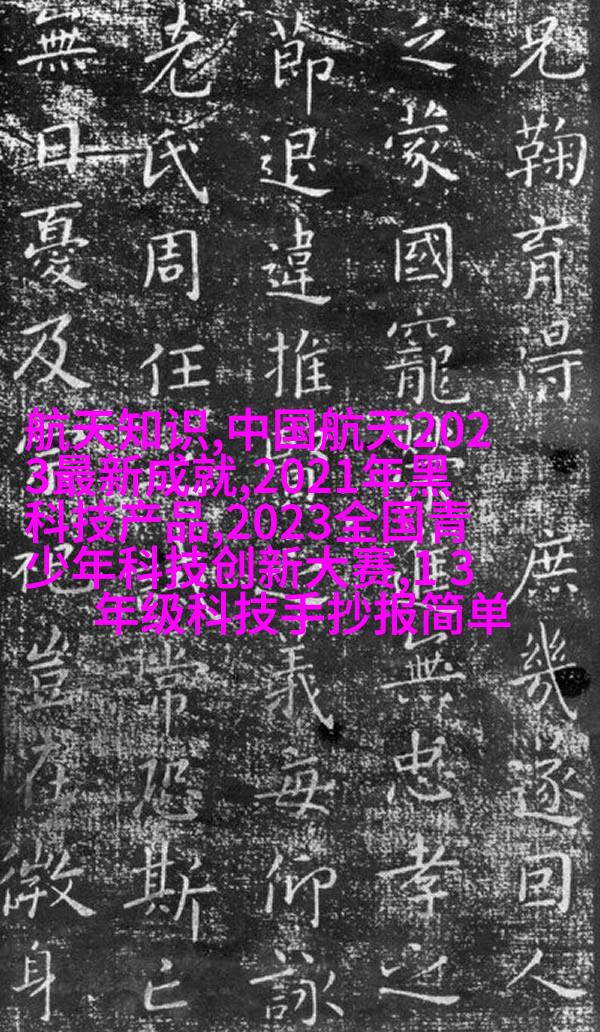 兄鞠育得庶幾遂回人
之蒙國寵榮無忠孝之
節退違推之義每仰詠
老氏周任常恐斯亡
無日憂及祀豈在微身
航天知识,中国航天202
3最新成就,2021年黑
科技产品,2023全国青
少年科技创新大赛,1 3
年级科技手抄报简单